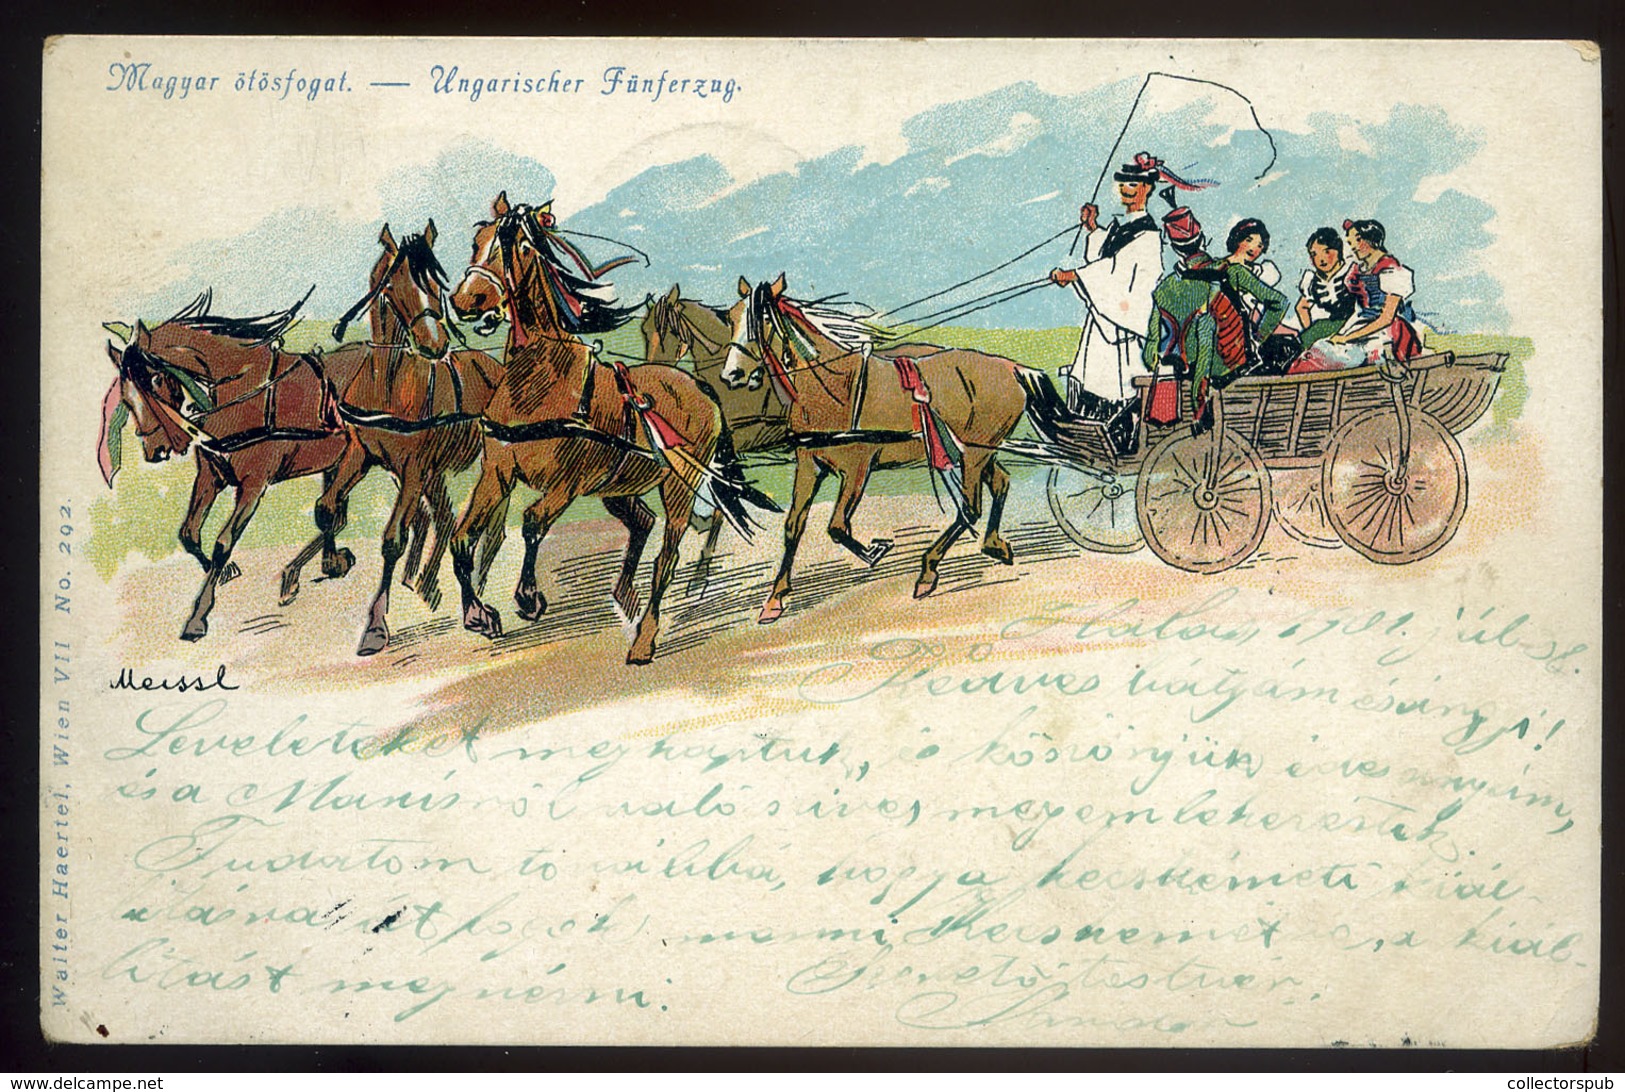 Magyar ötösfogat. — Ungarischer Fünferzug.
Walter Haertel, Wien VII No. 292.
Meissl
Halas, 1901. júl. 28.
Kedves bátyám és ángyi!
Leveleteket megkaptuk, és köszönjük édes anyám,
és a Marisról való szives megemlékezéstek
Tudatom továbbá, hogy a kecskeméti kiál-
litásra fogok menni Kecskemétre, a kiál-
litást megnézni.
Szerető testvér
Sándor
collectorspub